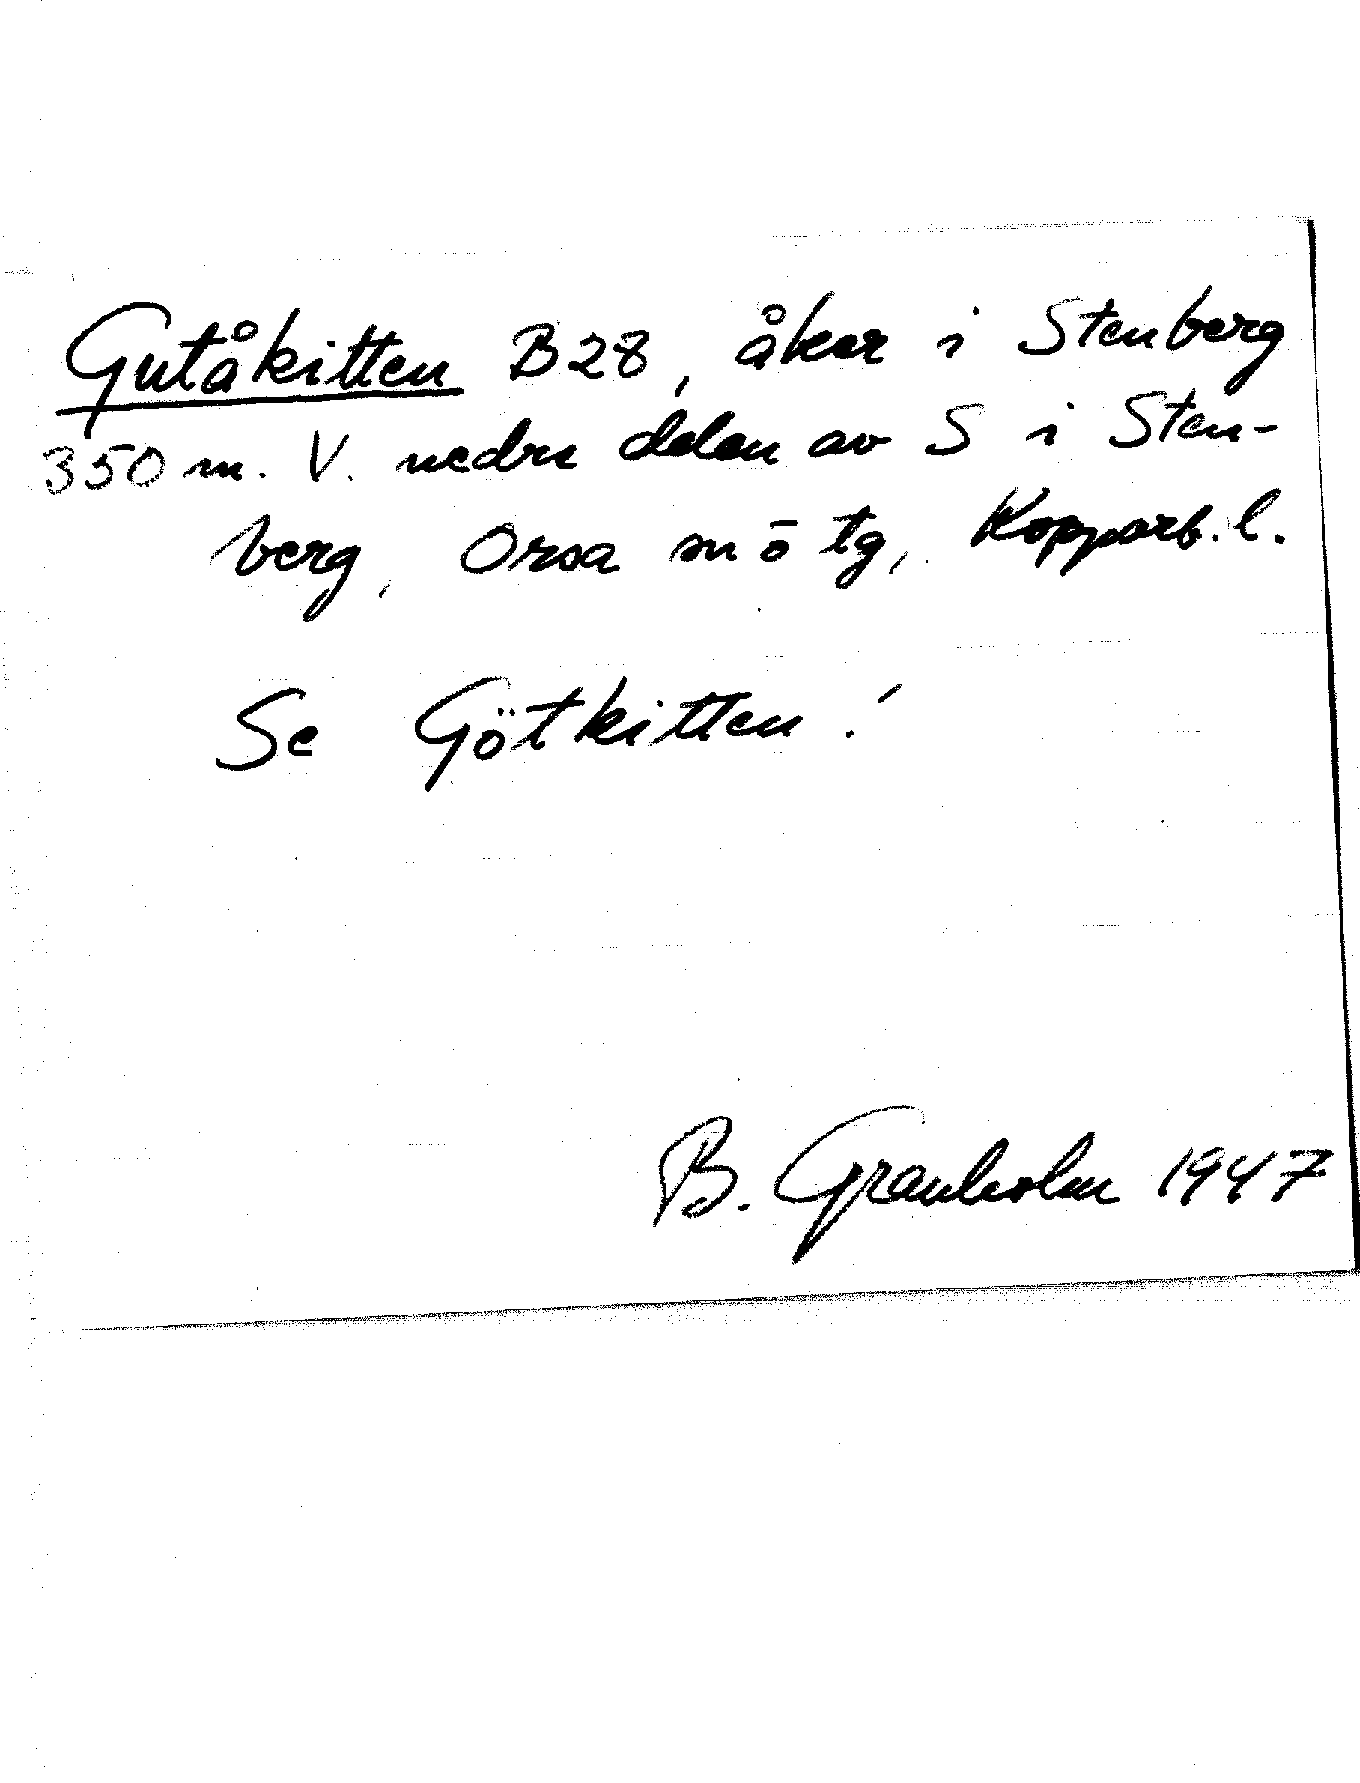 Gutåkitten B28, åker i Stenberg
350 m. V. nedre delen av S i Sten-
berg, Orsa sn ö tg, Kopparb. l.
Se Götkitten!
B. Granholm 1947